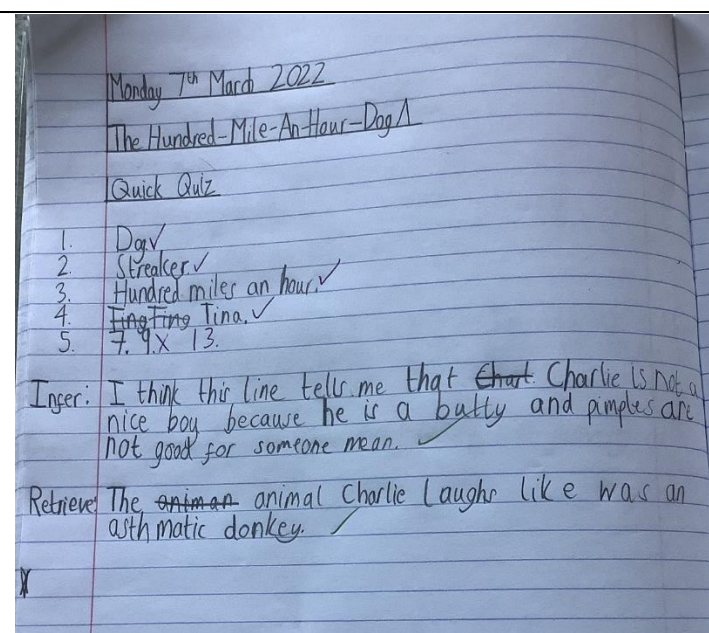 Monday 7th March 2022
The Hundred-Mile-An-Hour-Dog 1
Quick Quiz
1. Dog ✓
2. Streaker. ✓
3. Hundred miles an hour. ✓
4. Ting Ting Tina. ✓
5. 7. 9. x 13.
Infer: I think this line tells me that Chart Charlie is not a
nice boy because he is a bully and pimples are
not good for someone mean. ✓
Retrieve: The animan animal Charlie laughs like was an
asthmatic donkey. ✓